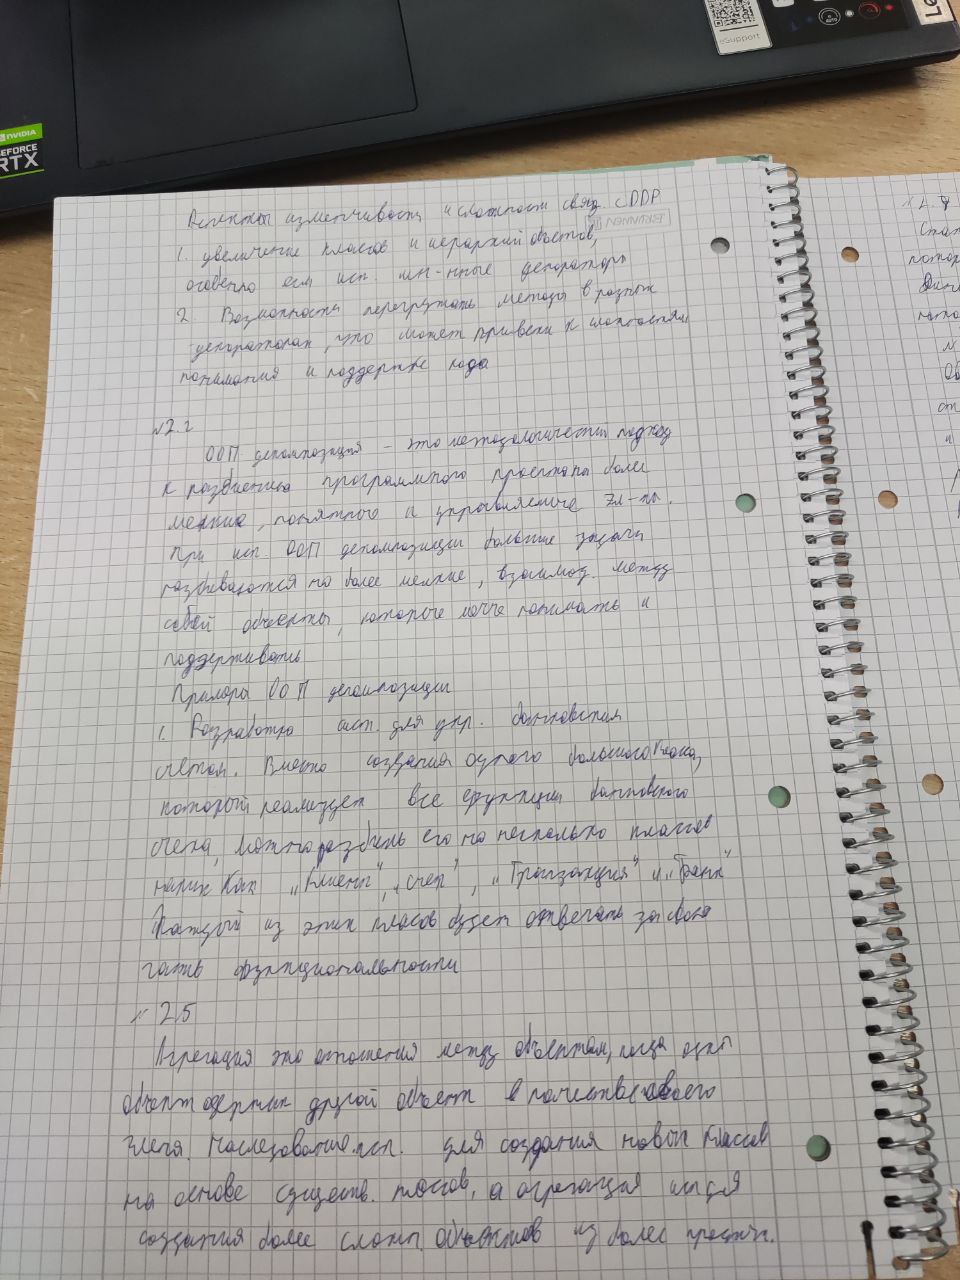 NVIDIA
GEFORCE
RTX
eSupport
Аспекты изменчивости и сложности связ. с DDP
1. увеличение класов и иерархий обьетов,
особенно если исп. мн-нные декораторы
2. Возможность перегружать методы в разных
декораторах, что может привести к сложностям
понимания и поддержке кода
№2.2
ООП декомпозиция это методологический подход
к разбиению программного проекта на более
мелкие, понятного и управляемые эл-ты.
При исп. ООП декомпозиции большие задачи
разбиваются на более мелкие, взаимод. между
собой объекты, которые легче понимать и
поддерживать
Примеры ООП декомпозиции
1. Разработка сист. для упр. банковским
счетом. Вместо создания одного большого класа,
который реализует все функции банковского
счета, можно разбить его на несколько классов
таких как „Клиент", „счет", „Транзакция" и „Банк"
Каждый из этих класов будет отвечать за свою
часть функциональности
№ 2.5
Агрегация это отношения между объектам, когда один
объект держит другой объект в качестве своего
члена. Наследование исп. для создания новых классов
на основе существ. классов, а агрегация исп для
создания более сложн. объектов из более простых.